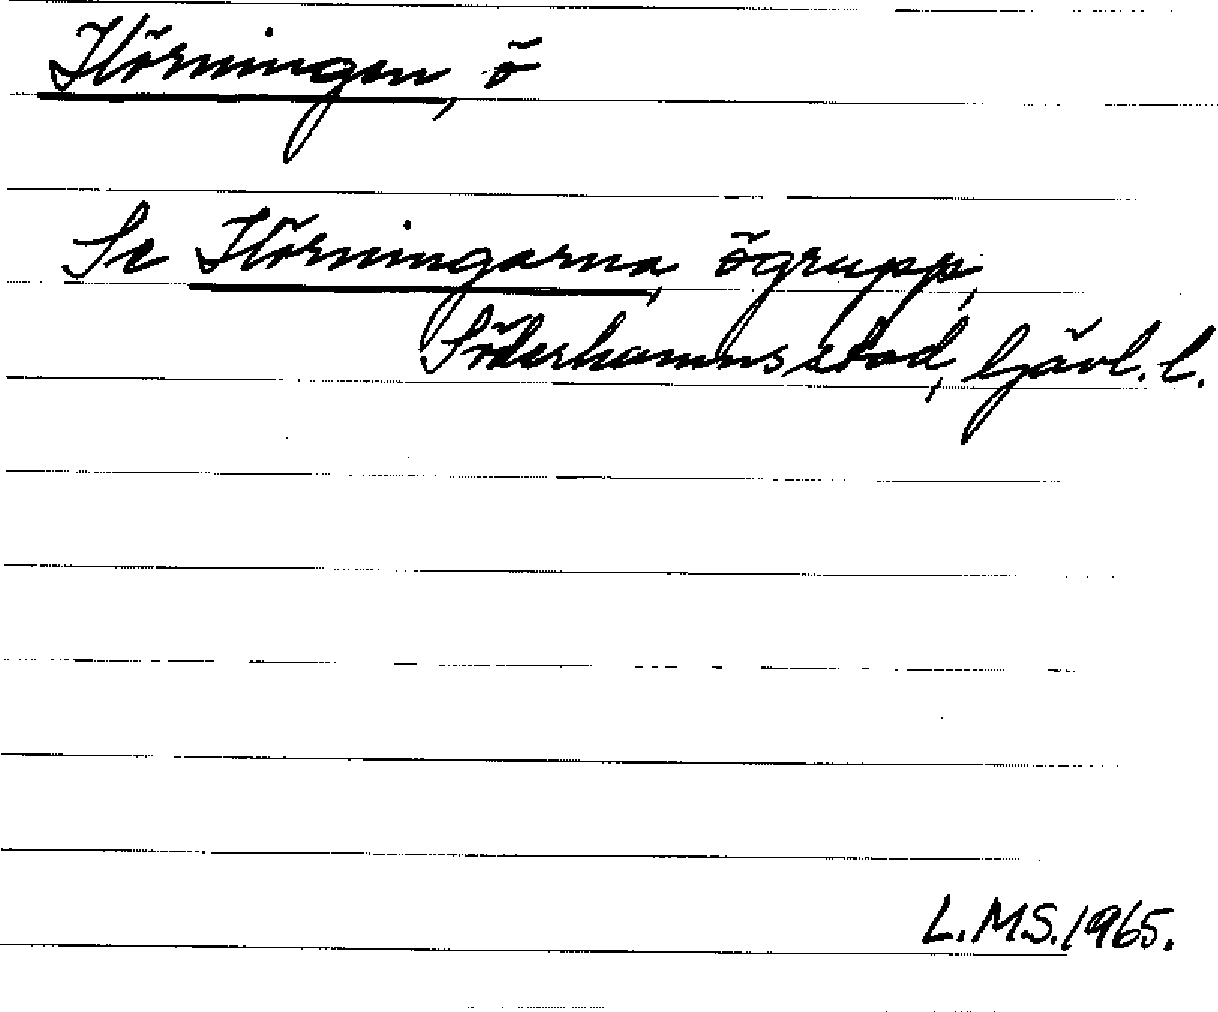 Hörningen, ö
Se Hörningarna, ögrupp,
Söderhamns stad, Gävl. l.
L.M.S. 1965.